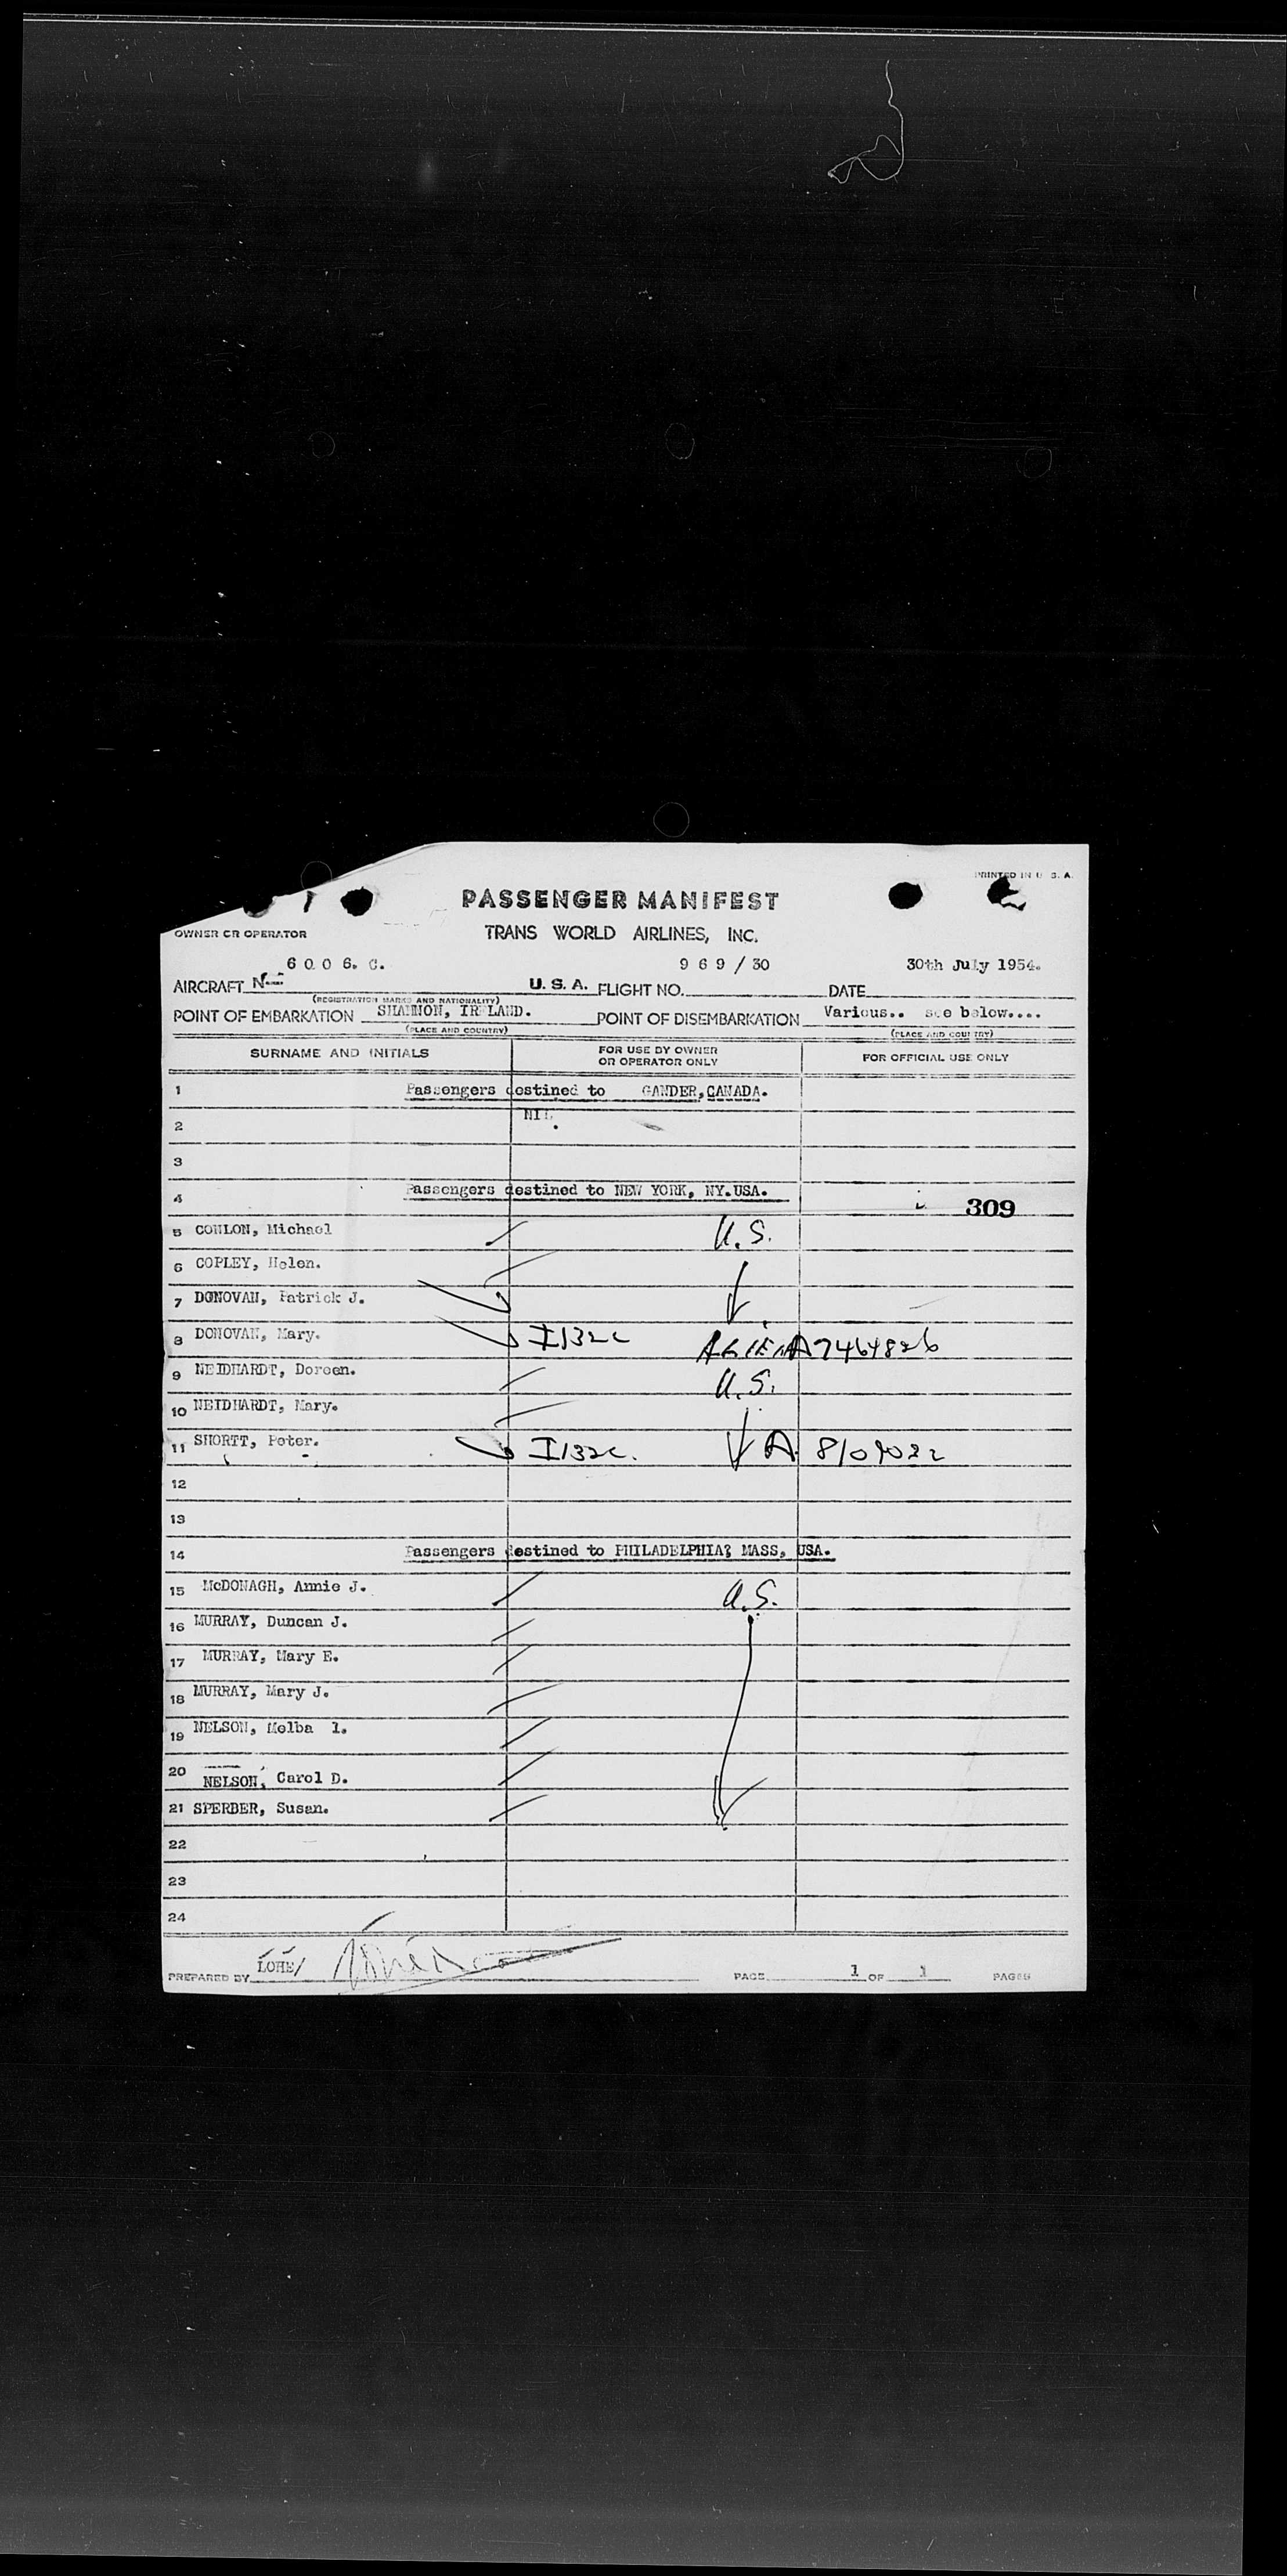 PRINTED IN U. S. A.
PASSENGER MANIFEST
OWNER OR OPERATOR TRANS WORLD AIRLINES, INC.
6 0 0 6. C. 9 6 9 / 30 30th July 1954.
AIRCRAFT N U. S. A. FLIGHT NO. DATE
(REGISTRATION MARKS AND NATIONALITY)
POINT OF EMBARKATION SHANNON, IRELAND. POINT OF DISEMBARKATION Various.. see below....
(PLACE AND COUNTRY) (PLACE AND COUNTRY)
SURNAME AND INITIALS FOR USE BY OWNER OR OPERATOR ONLY FOR OFFICIAL USE ONLY
1 Passengers destined to GANDER, CANADA.
2 NIL.
3
4 Passengers destined to NEW YORK, NY.USA.
309
5 CONLON, Michael U.S.
6 COPLEY, Helen.
7 DONOVAN, Patrick J.
8 DONOVAN, Mary. I132c ALIEN A7464826
9 NEIDHARDT, Doreen. U.S.
10 NEIDHARDT, Mary.
11 SHORTT, Peter. I132c. A
12
13
14 Passengers destined to PHILADELPHIA; MASS, USA.
15 McDONAGH, Annie J. U.S.
16 MURRAY, Duncan J.
17 MURRAY, Mary E.
18 MURRAY, Mary J.
19 NELSON, Melba l.
20 NELSON, Carol D.
21 SPERBER, Susan.
22
23
24
PREPARED BY LOHE/ PAGE 1 OF 1 PAGES